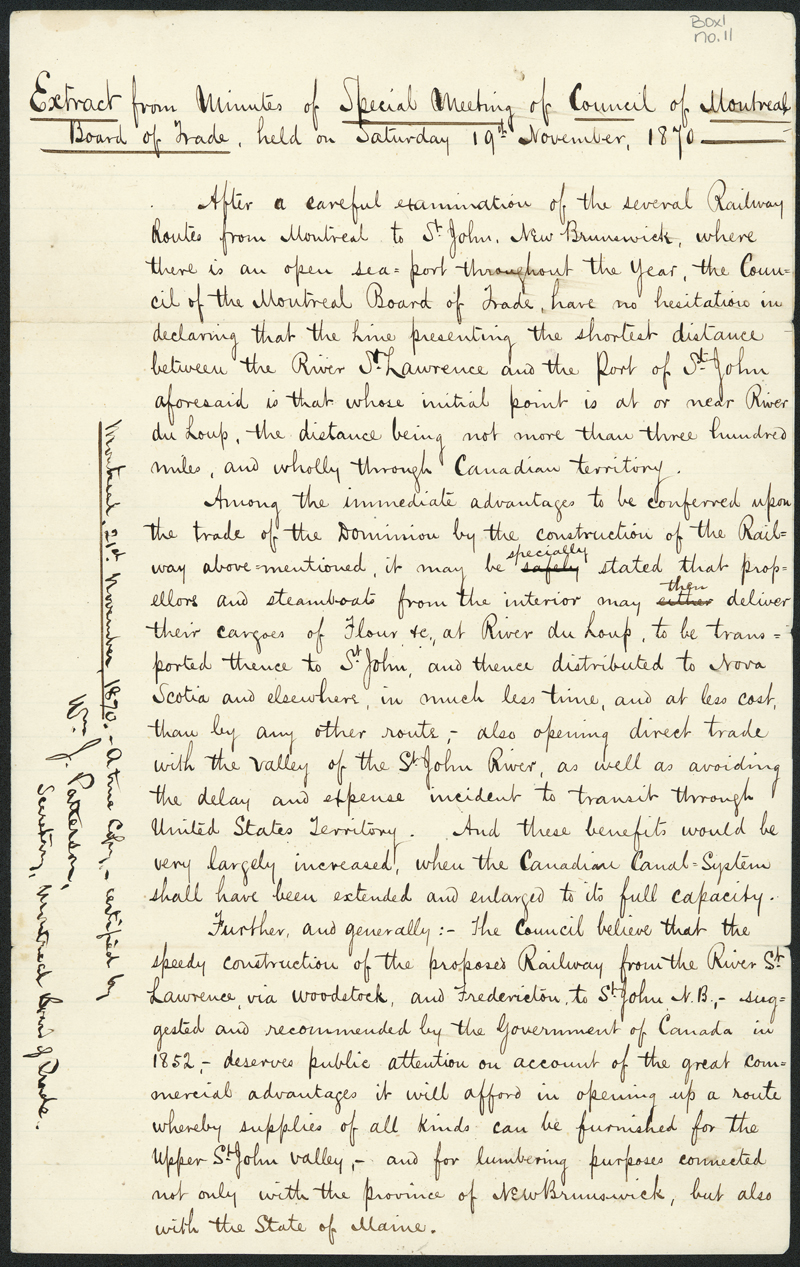 Box 1
no. 11
Extract from Minutes of Special Meeting of Council of Montreal
Board of Trade, held on Saturday 19th November, 1870
After a careful examination of the several Railway
Routes from Montreal to St. John, New Brunswick, where
there is an open sea=port throughout the Year, the Coun=
cil of the Montreal Board of Trade, have no hesitation in
declaring that the Line presenting the shortest distance
between the River St. Lawrence and the Port of St. John
aforesaid is that whose initial point is at or near River
du Loup, the distance being not more than three hundred
miles, and wholly through Canadian territory.
Among the immediate advantages to be conferred upon
the trade of the Dominion by the construction of the Rail=
way above=mentioned, it may be safely specially stated that prop=
ellors and steamboats from the interior may either then deliver
their cargoes of Flour &c, at River du Loup, to be trans=
ported thence to St. John, and thence distributed to Nova
Scotia and elsewhere, in much less time, and at less cost,
than by any other route,- also opening direct trade
with the Valley of the St. John River, as well as avoiding
the delay and expense incident to transit through
United States Territory. And these benefits would be
very largely increased, when the Canadian Canal=System
shall have been extended and enlarged to its full capacity.
Further, and generally:- The Council believe that the
speedy construction of the proposed Railway from the River St.
Lawrence, via Woodstock, and Fredericton, to St. John N.B.,- sug=
gested and recommended by the Government of Canada in
1852,- deserves public attention on account of the great com=
mercial advantages it will afford in opening up a route
whereby supplies of all kinds can be furnished for the
Upper St. John Valley,- and for lumbering purposes connected
not only with the province of New Brunswick, but also
with the State of Maine.
Montreal, 21st. November, 1870.- A true Copy,- certified by
Wm. J. Patterson,
Secretary, Montreal Board of Trade.